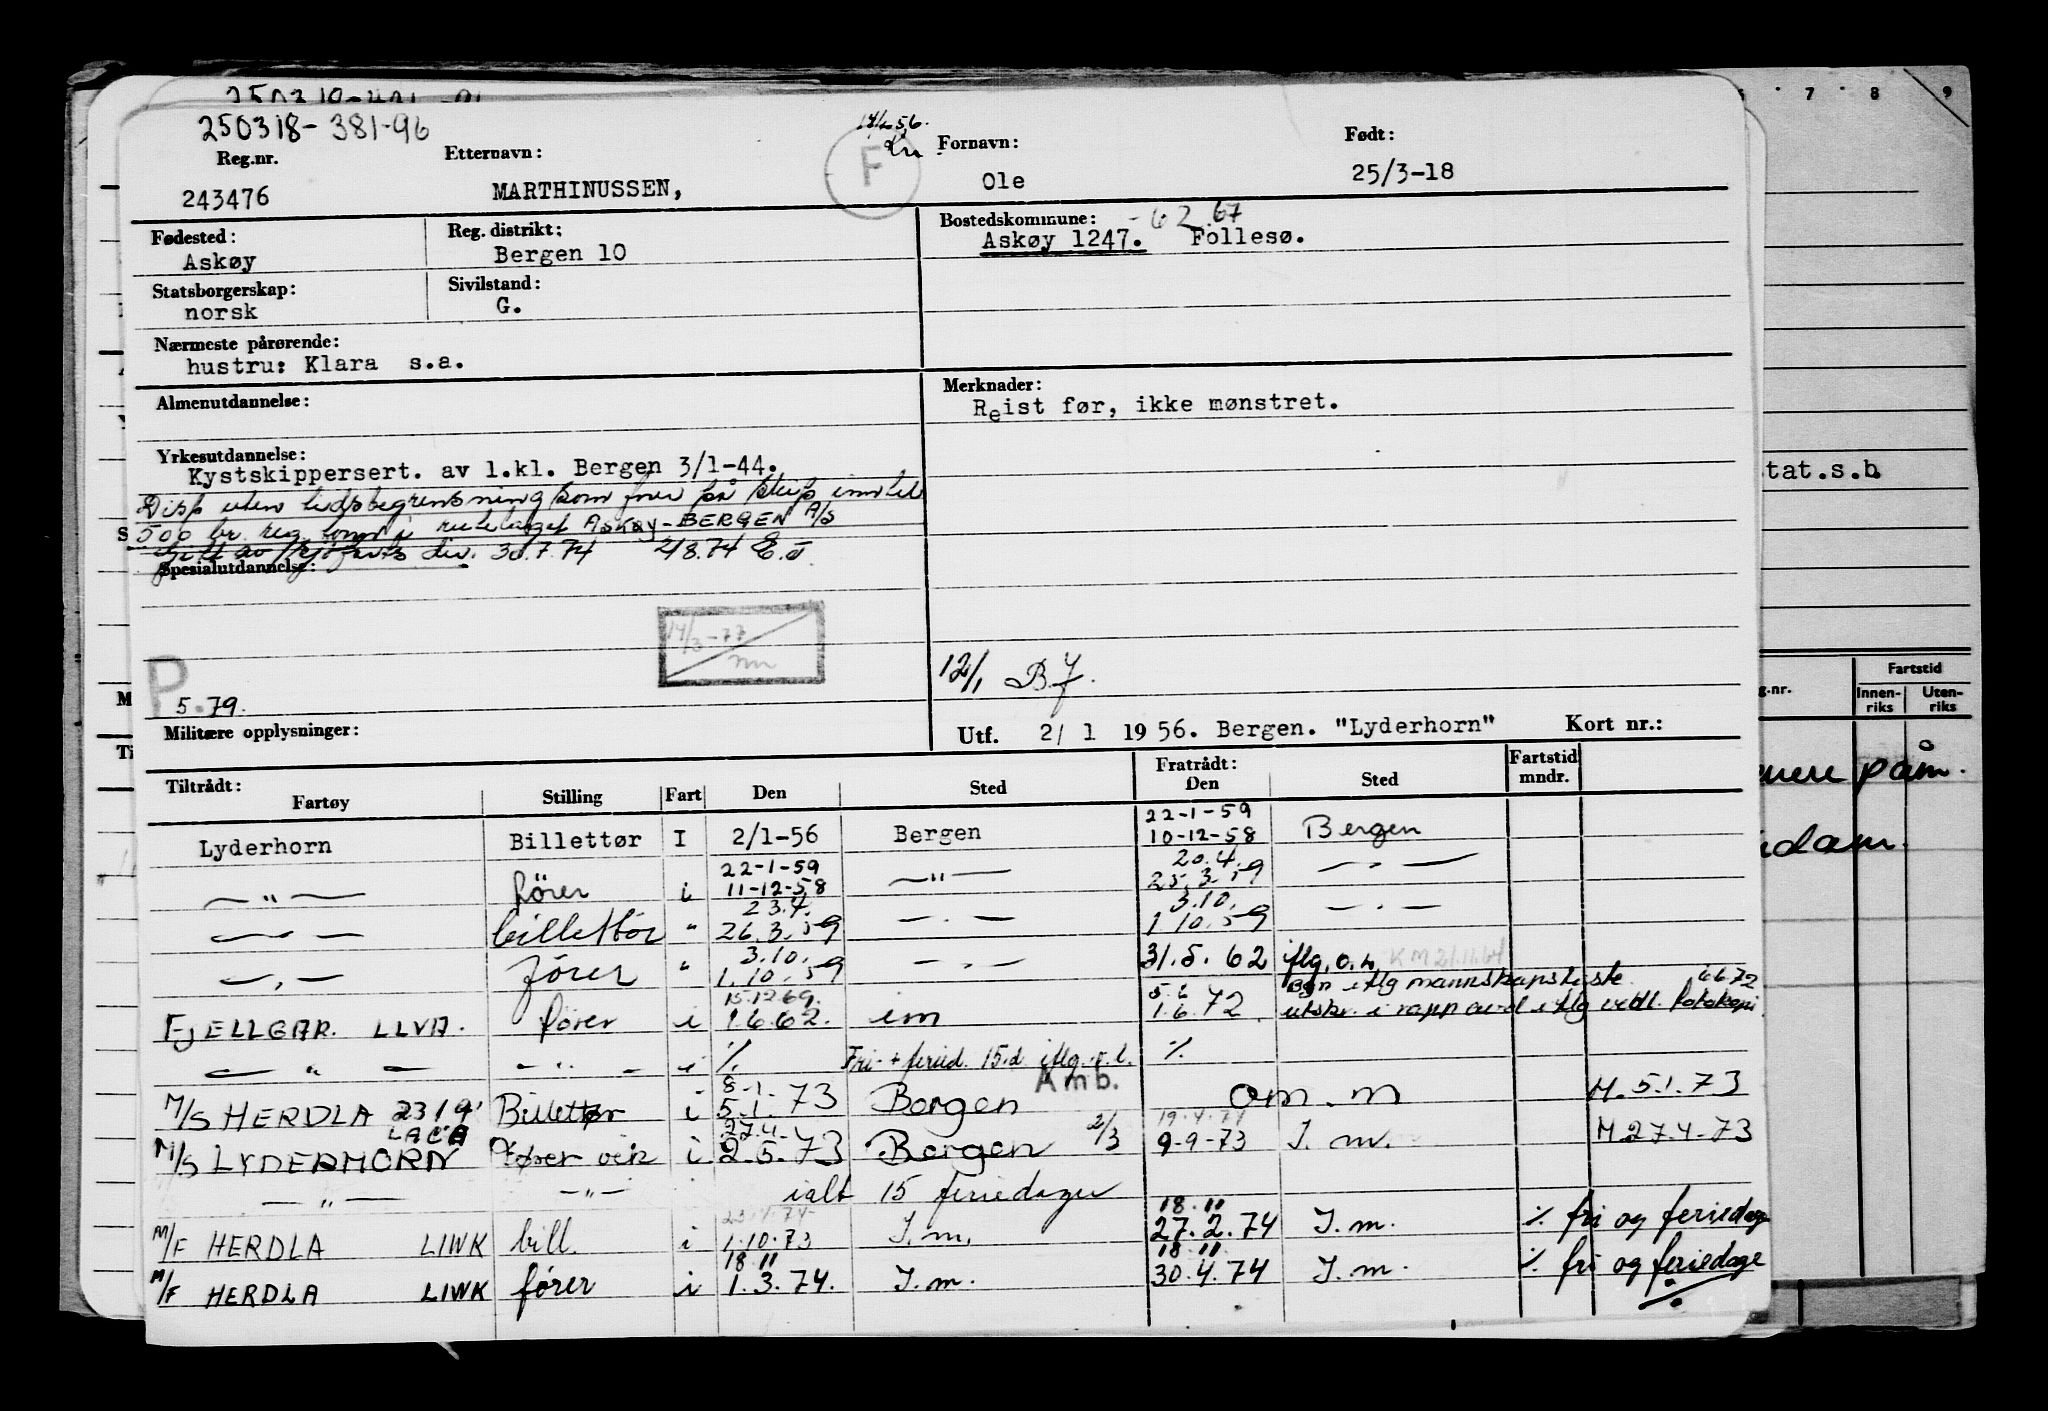 250318-381-96
Reg.nr. Etternavn: Fornavn: Født:
243476 MARTHINUSSEN, F Ole 25/3-18
Fødested: Reg. distrikt: Bostedskommune: -62.67
Askøy Bergen 10 Askøy 1247. Follesø.
Statsborgerskap: Sivilstand:
norsk G.
Nærmeste pårørende:
hustru: Klara s.a.
Almenutdannelse: Merknader:
Reist før, ikke mønstret.
Yrkesutdannelse:
Kystskippersert. av 1.kl. Bergen 3/1-44.
Disp uten tidsbegrensning som fører på skip inntil
500 br. reg. tonn i rutelaget ASKøy-BERGEN A/S
gitt av Sjøfarts dir. 30.7.74 2/8.74 E.J
Spesialutdannelse:
14/3-77
nn
P 12/1 B.J.
5.79.
Militære opplysninger: Utf. 2/ 1 19 56. Bergen. "Lyderhorn" Kort nr.:
Tiltrådt: Fratrådt: Fartstid
Fartøy Stilling Fart Den Sted Den Sted mndr.
22-1-59
Lyderhorn Billettør I 2/1-56 Bergen 10-12-58 Bergen
22-1-59 20.4.
— " — fører i 11-12-58 — " — 25.3.59 — " —
23.4. 3.10.
— " — billettør " 26.3.59 — " — 1.10.59 — " —
3.10.
— " — fører " 1.10.59 — " — 31.5.62 iflg. o.l. KM 21.11.64
15.12.69. 5.6 Bgn iflg mannskapsliste 6.6.72
FJELLGAR. LLVA. fører i 1.6.62. im 1.6.72 utskr. i rapp avd iflg vedl. fotokopi
— " — — " — i % Fri- + feried. 15.d iflg. o.l. %
8.1. Amb.
M/S HERDLA 2319 Billettør i 5.1.73 Bergen om. m M.5.1.73
LACA 27.4. 2/3 19.4.74
M/S LYDERHORN Fører vik i 2.5.73 Bergen 9-9-73 I.m. M 27.4-73
— " — — " — ialt 15 feriedager
23.4.74 18.11
M/F HERDLA LIWK bill. i 1.10.73 I.m. 27.2.74 I.m. % fri og feriedage
18.11 18.11
M/F HERDLA LIWK fører i 1.3.74. I.m. 30.4.74 I.m. % fri og feriedage
7 8 9
tat.s.b
Fartstid
g.nr. Innen-riks Uten-riks
påm.
dam.